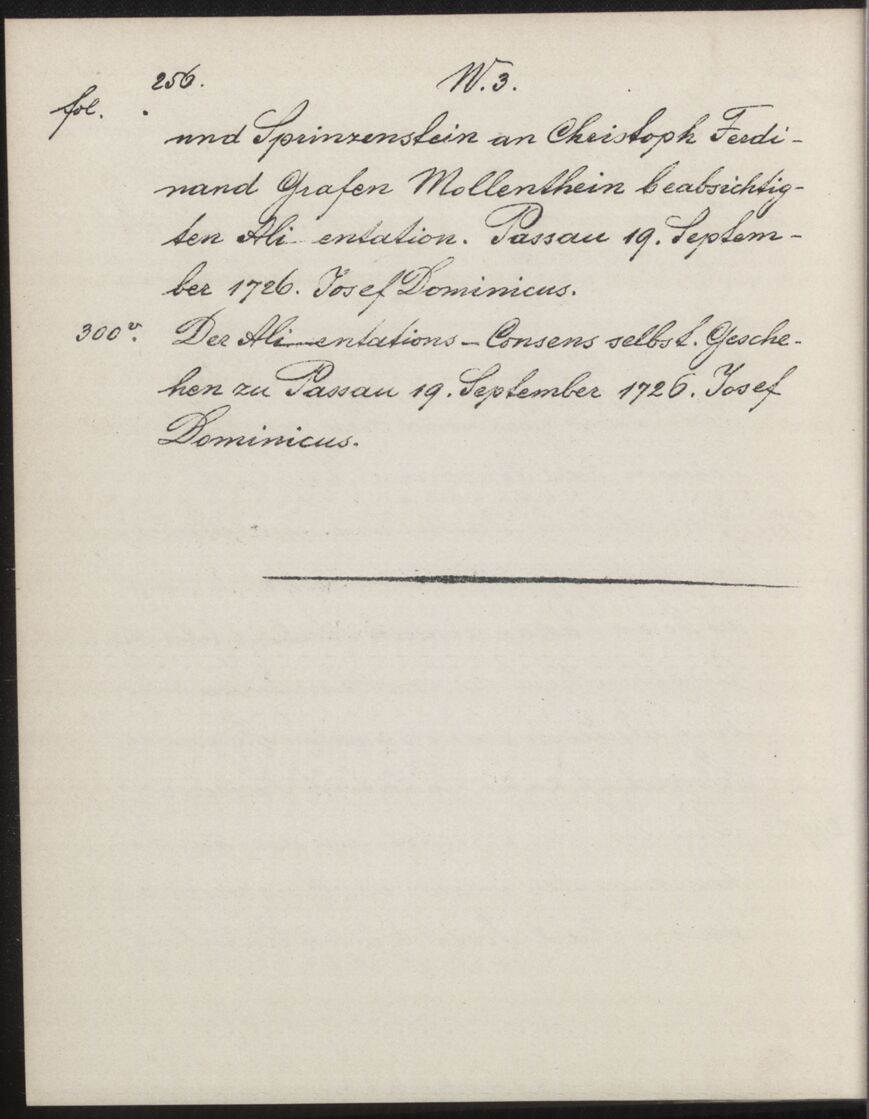 256. W. 3.
fol.
und Sprinzenstein an Christoph Ferdi-
nand Grafen Mollenthein beabsichtig-
ten Ali entation. Passau 19. Septem-
ber 1726. Josef Dominicus.
300v. Der Ali—entations-Consens selbst. Gesche-
hen zu Passau 19. September 1726. Josef
Dominicus.